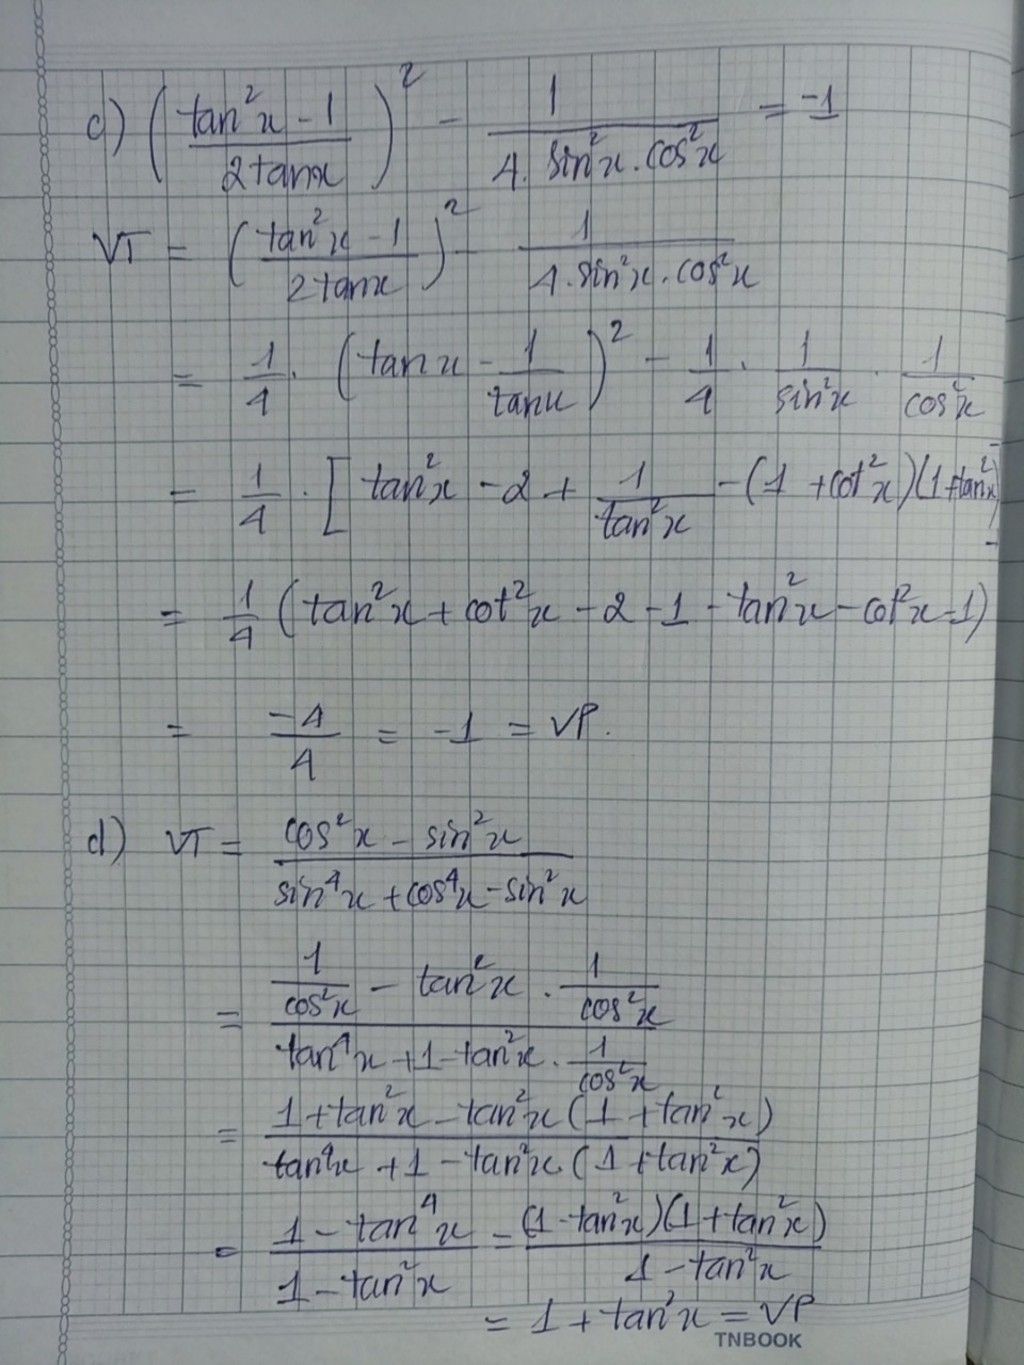 c) (tan²x - 1 / 2tanx)² - 1 / 4.sin²x.cos²x = -1
VT = (tan²x - 1 / 2tanx)² - 1 / 4.sin²x.cos²x
= 1/4 . (tanx - 1/tanx)² - 1/4 . 1/sin²x . 1/cos²x
= 1/4 . [tan²x - 2 + 1/tan²x - (1 + cot²x)(1+tan²x)]
= 1/4 (tan²x + cot²x - 2 - 1 - tan²x - cot²x - 1)
= -4/4 = -1 = VP.
d) VT = cos²x - sin²x / sin⁴x + cos⁴x - sin²x
= 1/cos²x - tan²x . 1/cos²x / tan⁴x + 1 - tan²x . 1/cos²x
= 1 + tan²x - tan²x (1 + tan²x) / tan⁴x + 1 - tan²x (1 + tan²x)
= 1 - tan⁴x / 1 - tan²x = (1 - tan²x)(1 + tan²x) / 1 - tan²x
= 1 + tan²x = VP
TNBOOK